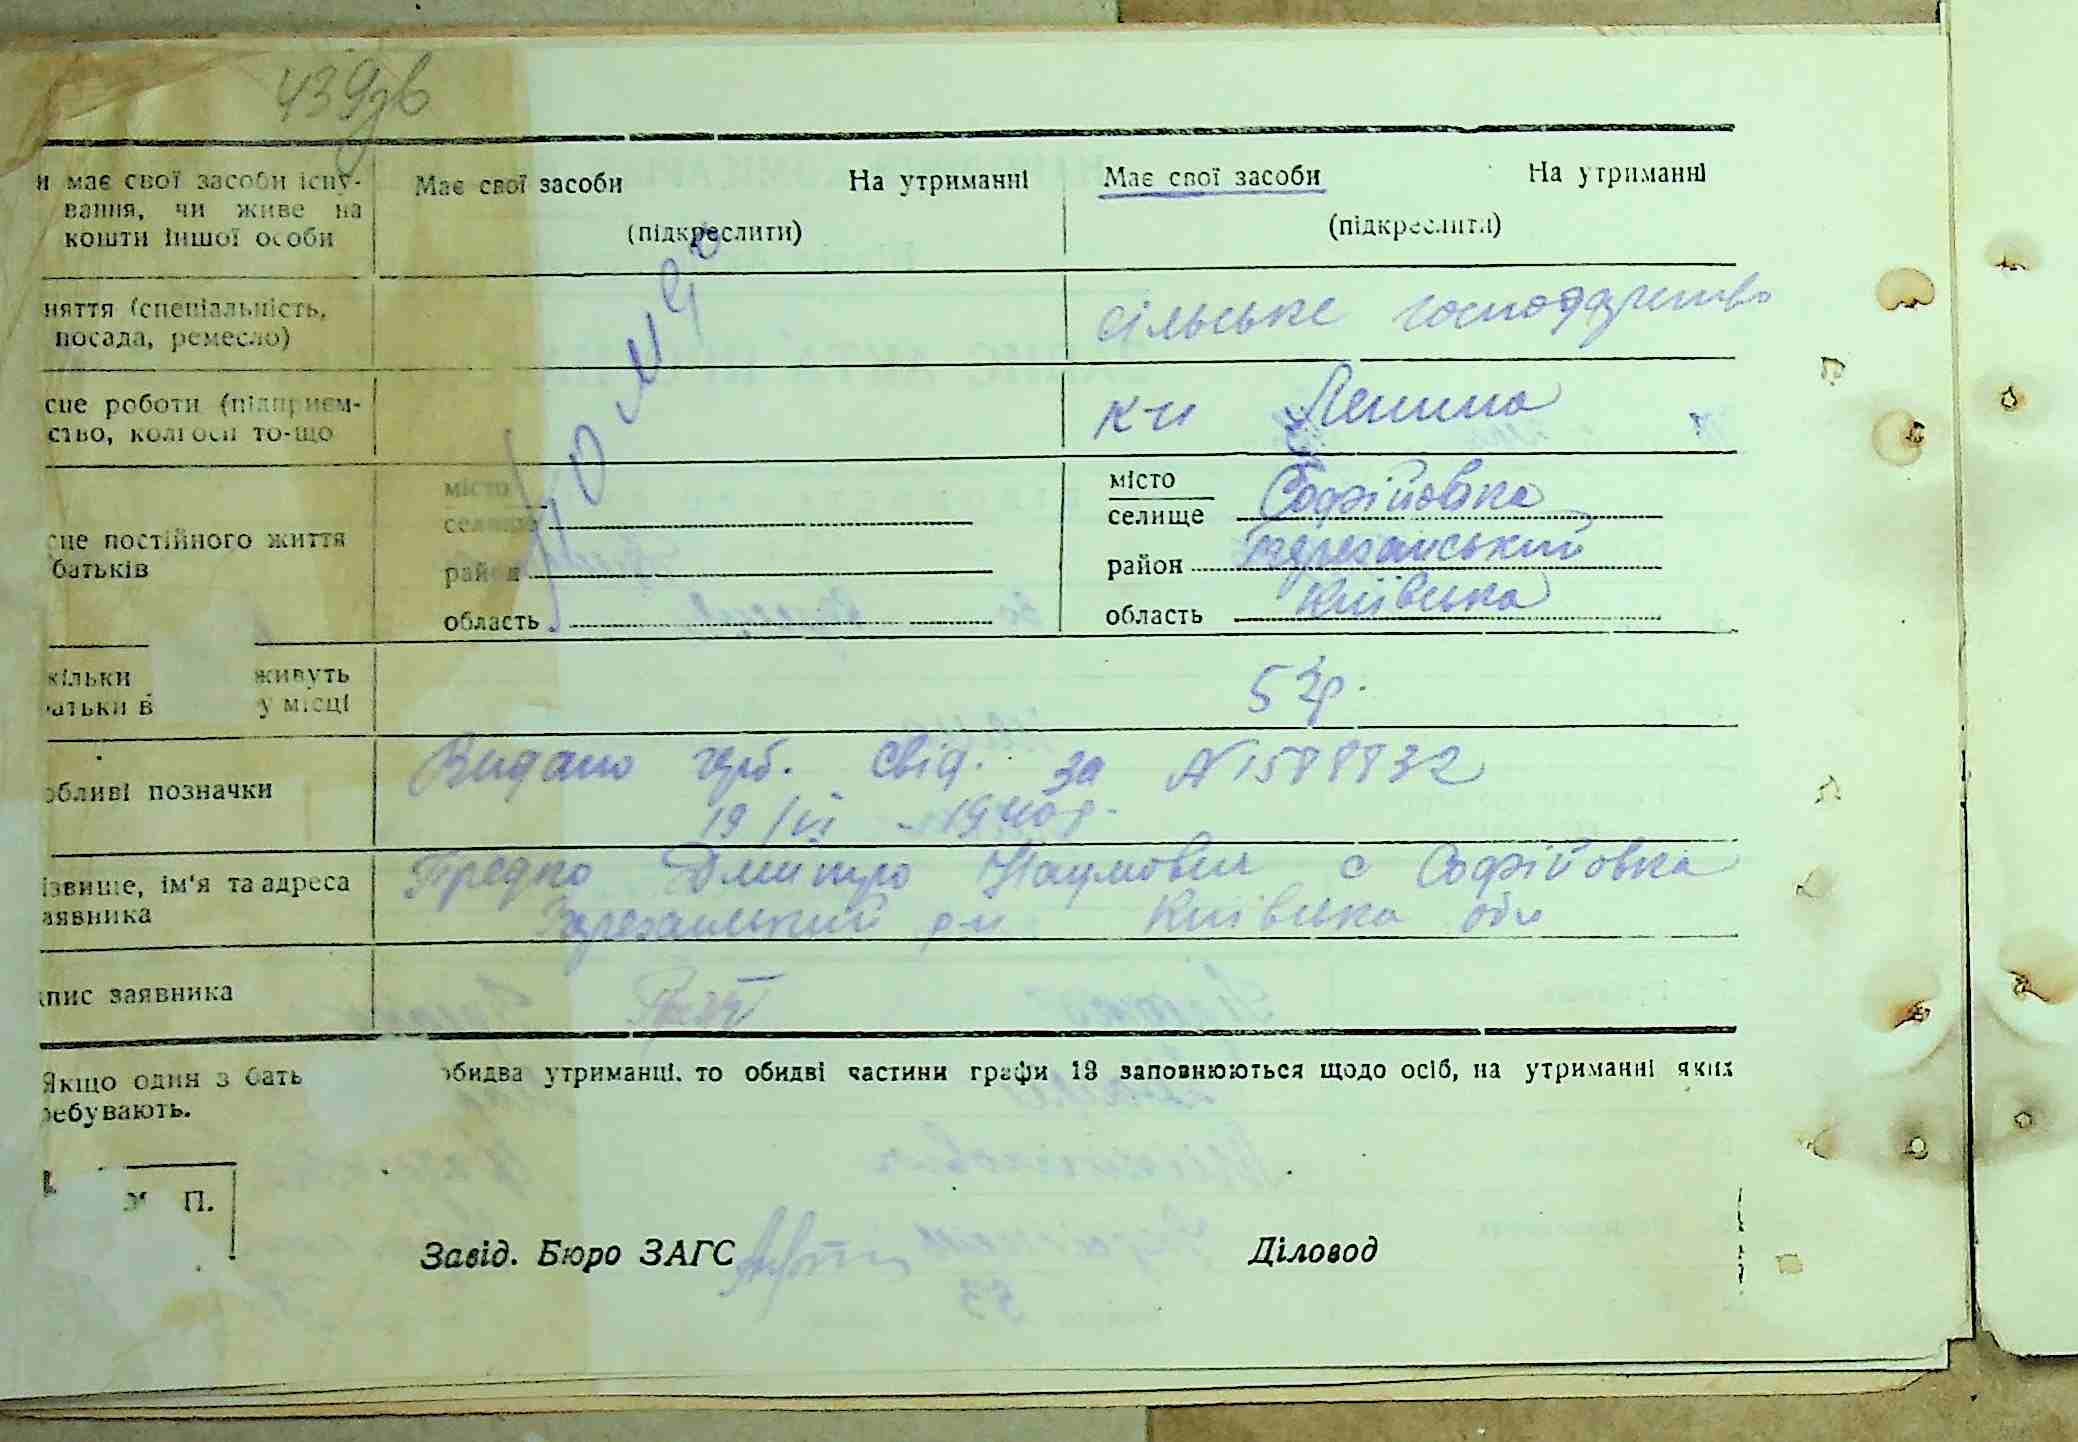 439зв
и має свої засоби існу-
вання, чи живе на
кошти іншої особи
Має свої засоби На утриманні
(підкреслити)
Має свої засоби На утриманні
(підкреслити)
няття (спеціальність,
посада, ремесло)
сільське господарство
сце роботи (підприєм-
ство, колгосп то-що
к-п Леніна
сце постійного життя
батьків
місто
селище
район
область
місто
селище Софійовка
район Березанський
область Київська
кільки живуть
атьки в у місці
5 2р.
обливі позначки
Видано герб. свід. за N 1588832
19/VI - 1940р.
ізвище, ім'я та адреса
аявника
Предко Дмитро Наумович с Софійовка
Березанський р-н Київська обл
пис заявника
Якщо один з бать обидва утриманці, то обидві частини графи 13 заповнюються щодо осіб, на утриманні яких
ребувають.
П.
Завід. Бюро ЗАГС
Діловод